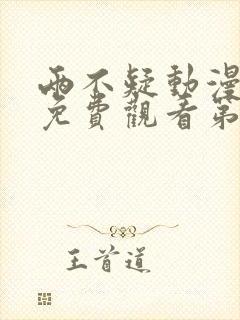 兩不疑動漫
免費觀看第
王首道